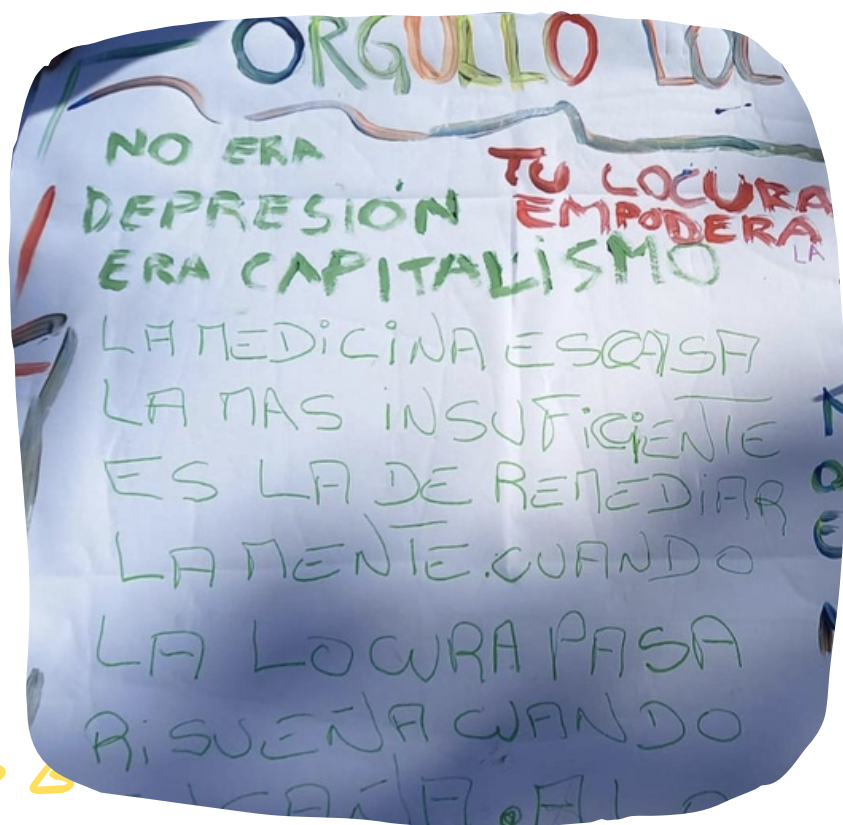 ORGULLO LOC
NO ERA
DEPRESIÓN
ERA CAPITALISMO
TU LOCURA
EMPODERA
LA
LA MEDICINA ESCASA
LA MAS INSUFICIENTE
ES LA DE REMEDIAR
LA MENTE. CUANDO
LA LOCURA PASA
RISUEÑA CUANDO